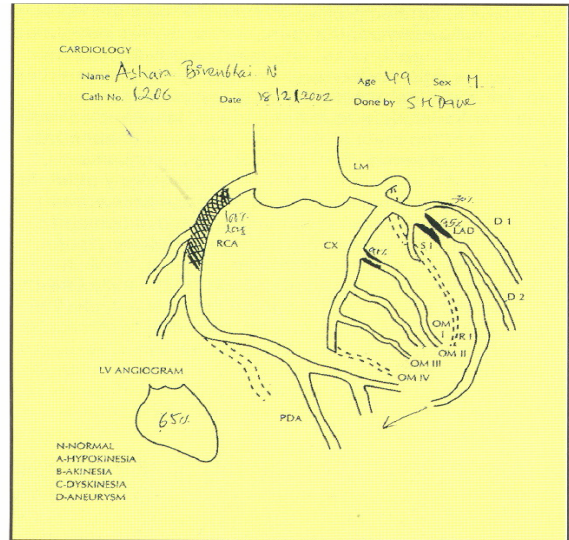 CARDIOLOGY
Name Ashara Birenbhai N Age 49 Sex M
Cath No. 1206 Date 18/2/2002 Done by S H Dave
LM
70%
D 1
95%
LAD
S 1
RCA
CX
90%
D 2
OM I
R I
OM II
OM III
OM IV
LV ANGIOGRAM
65%
PDA
N-NORMAL
A-HYPOKINESIA
B-AKINESIA
C-DYSKINESIA
D-ANEURYSM